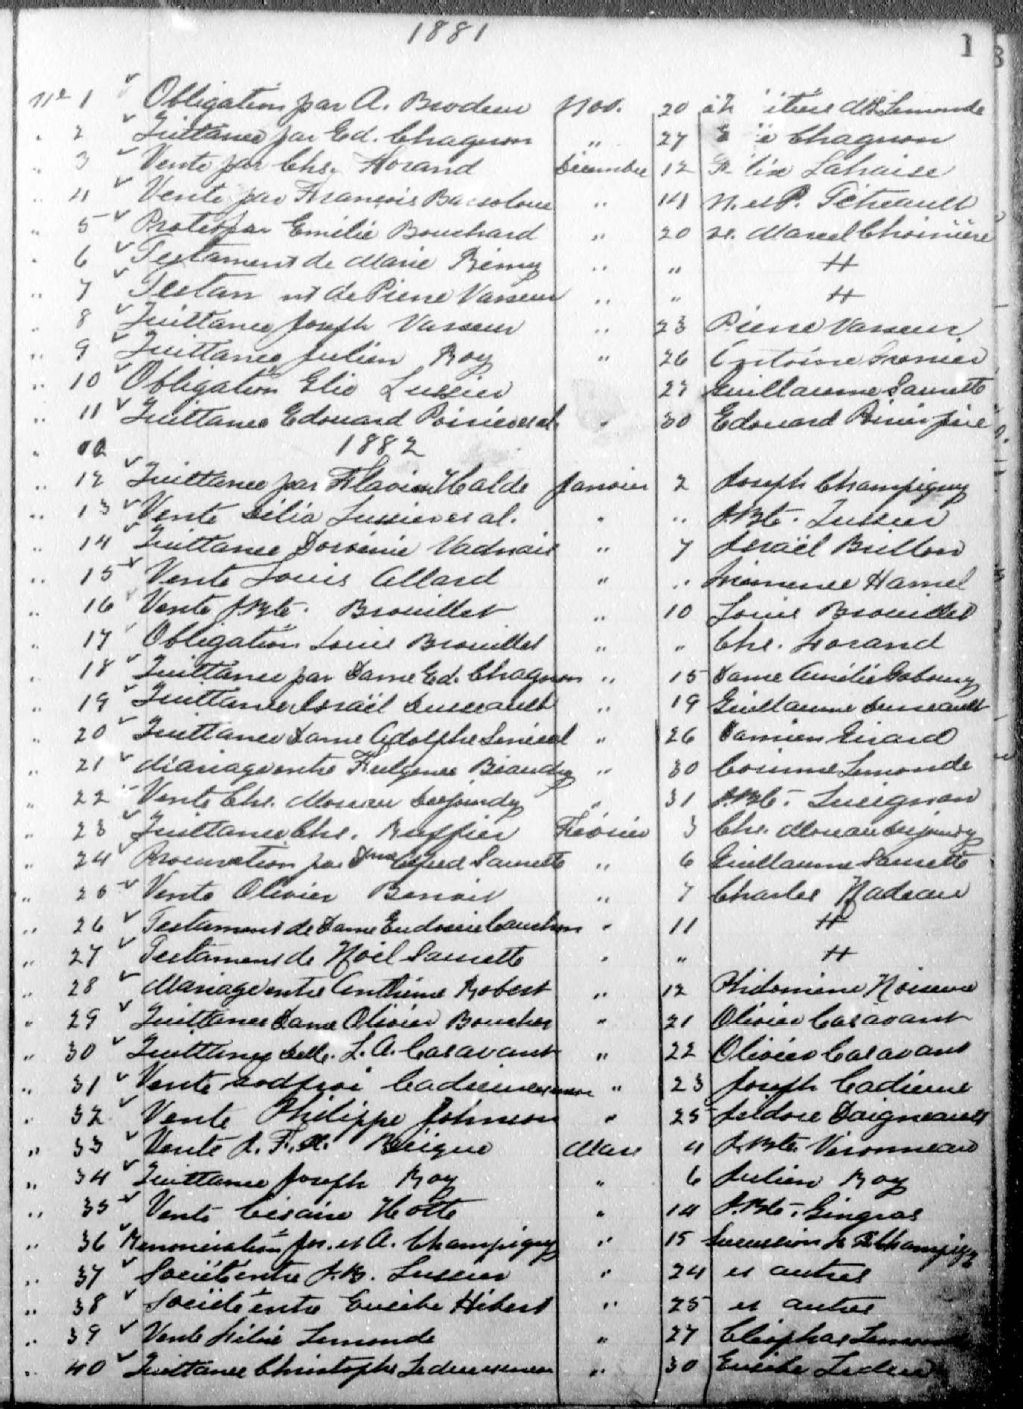 1881
1
No 1 Obligation par A. Brodeur Nov. 20 Lemonde
" 2 Quittance par Ed. Chagnon " 27 Chagnon
" 3 Vente par Chs. Morand Décembre 12 Lahaise
" 4 Vente par François " 14 N. et P. Tétreault
" 5 Protet par Emilie Bouchard " 20 Marcel Choinière
" 6 Testament de Marie Remy " " H
" 7 Testam nt de Pierre Vasseur " " H
" 8 Quittance Joseph Vasseur " 23 Pierre Vasseur
" 9 Quittance Julien Roy " 26 Antoine
" 10 Obligation Elie Lussier 27 Guillaume Paquette
" 11 Quittance Edouard Poirier et al. " 30 Edouard Poirier père
1882
" 12 Quittance par Flavien Halde Janvier 2 Joseph Champigny
" 13 Vente Délia Lussier et al. " " J.Bte. Lussier
" 14 Quittance Vadnais " 7 Israël Brillon
" 15 Vente Louis Allard " " Hamel
" 16 Vente J.Bte. Brouillet " 10 Louis Brouillet
" 17 Obligation Louis Brouillet " " Chs. Morand
" 18 Quittance par Dame Ed. Chagnon " 15 Dame Amélie
" 19 Quittance Israël Dussault " 19 Guillaume Dussault
" 20 Quittance Dame Adolphe Sénécal " 26 Damien Girard
" 21 Mariage entre Fulgence Beaudry " 30 Corinne Lemonde
" 22 Vente Chs. Moreau Desjourdy " 31 J.Bte. Lusignan
" 23 Quittance Chs. Ruffier Février 3 Chs. Moreau Desjourdy
" 24 Procuration par Dme Alfred Paquette " 6 Guillaume Paquette
" 25 Vente Olivier Benoit " 7 Charles Nadeau
" 26 Testament de Dame Eudoxie Cauchon " 11 H
" 27 Testament de Noël Paquette " " H
" 28 Mariage entre Anthime Robert " 12 Philomène Noiseux
" 29 Quittance Dame Olivier Boucher " 21 Olivier Casavant
" 30 Quittance Delle. L. A. Casavant " 22 Olivier Casavant
" 31 Vente Godfroi Cadieux " 23 Joseph Cadieux
" 32 Vente Philippe Johnson " 25 Isidore Daigneault
" 33 Vente J. F. X. Bérigue Mars 4 J.Bte. Véronneau
" 34 Quittance Joseph Roy " 6 Julien Roy
" 35 Vente Césaire Hotte " 14 J.Bte. Gingras
" 36 Renonciation Jos. et A. Champigny " 15 Succession Champigny
" 37 Société entre J.B. Lussier " 24 et autres
" 38 Société entre Eusèbe Hébert " 25 et autres
" 39 Vente Lemonde " 27 Cléophas Lemonde
" 40 Quittance Christophe " 30 Eusèbe